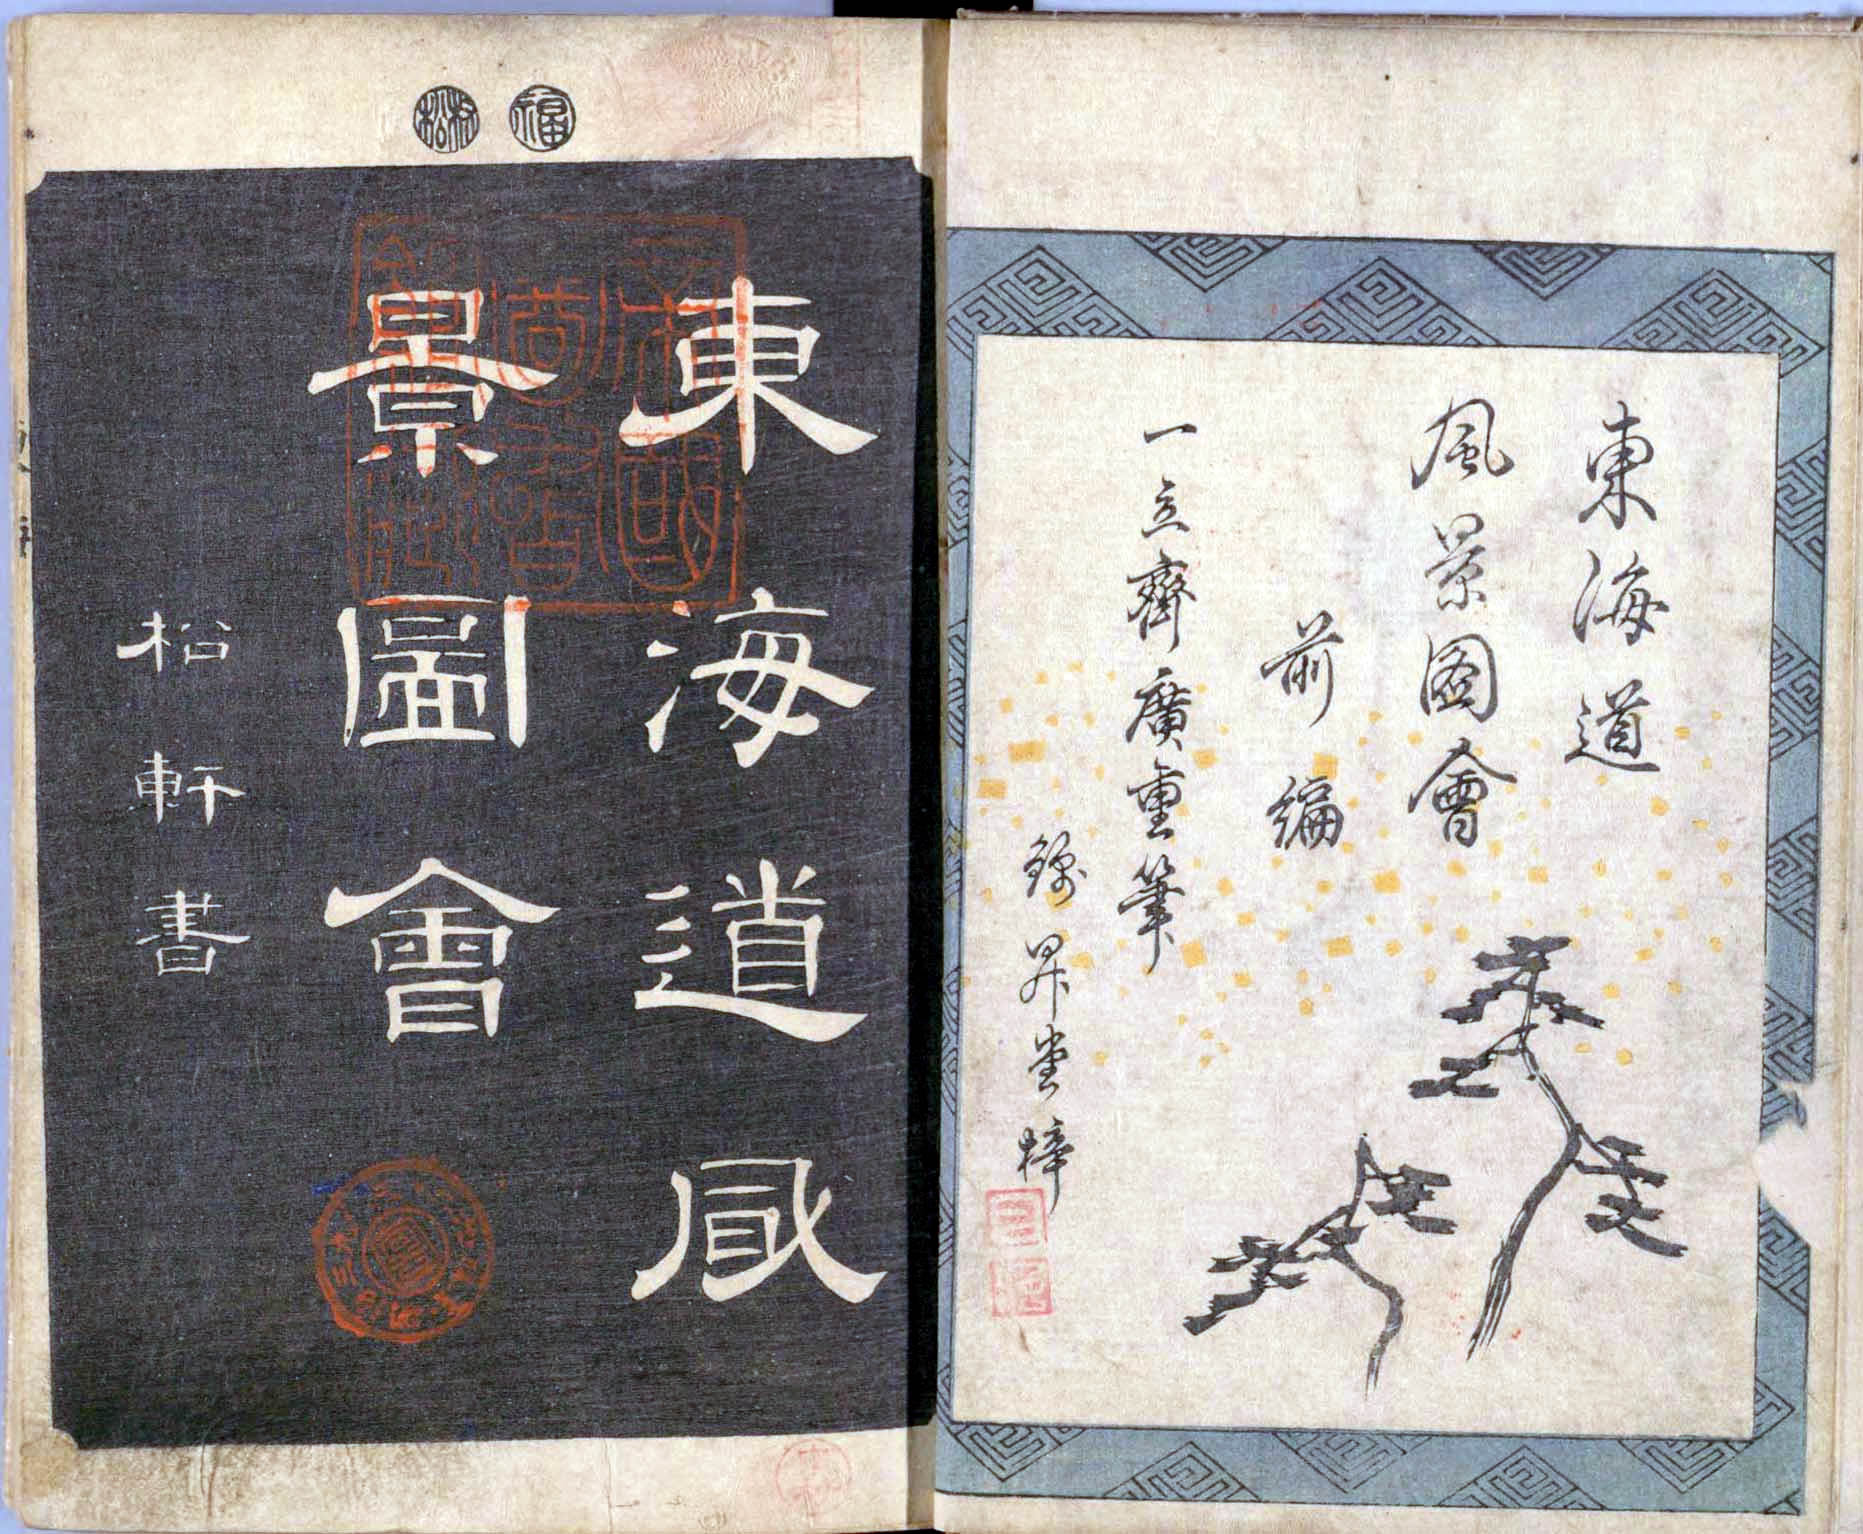 東海道
風景図會
前編
一立齋廣重筆
錦昇堂梓
東海道風
景圖會
松軒書